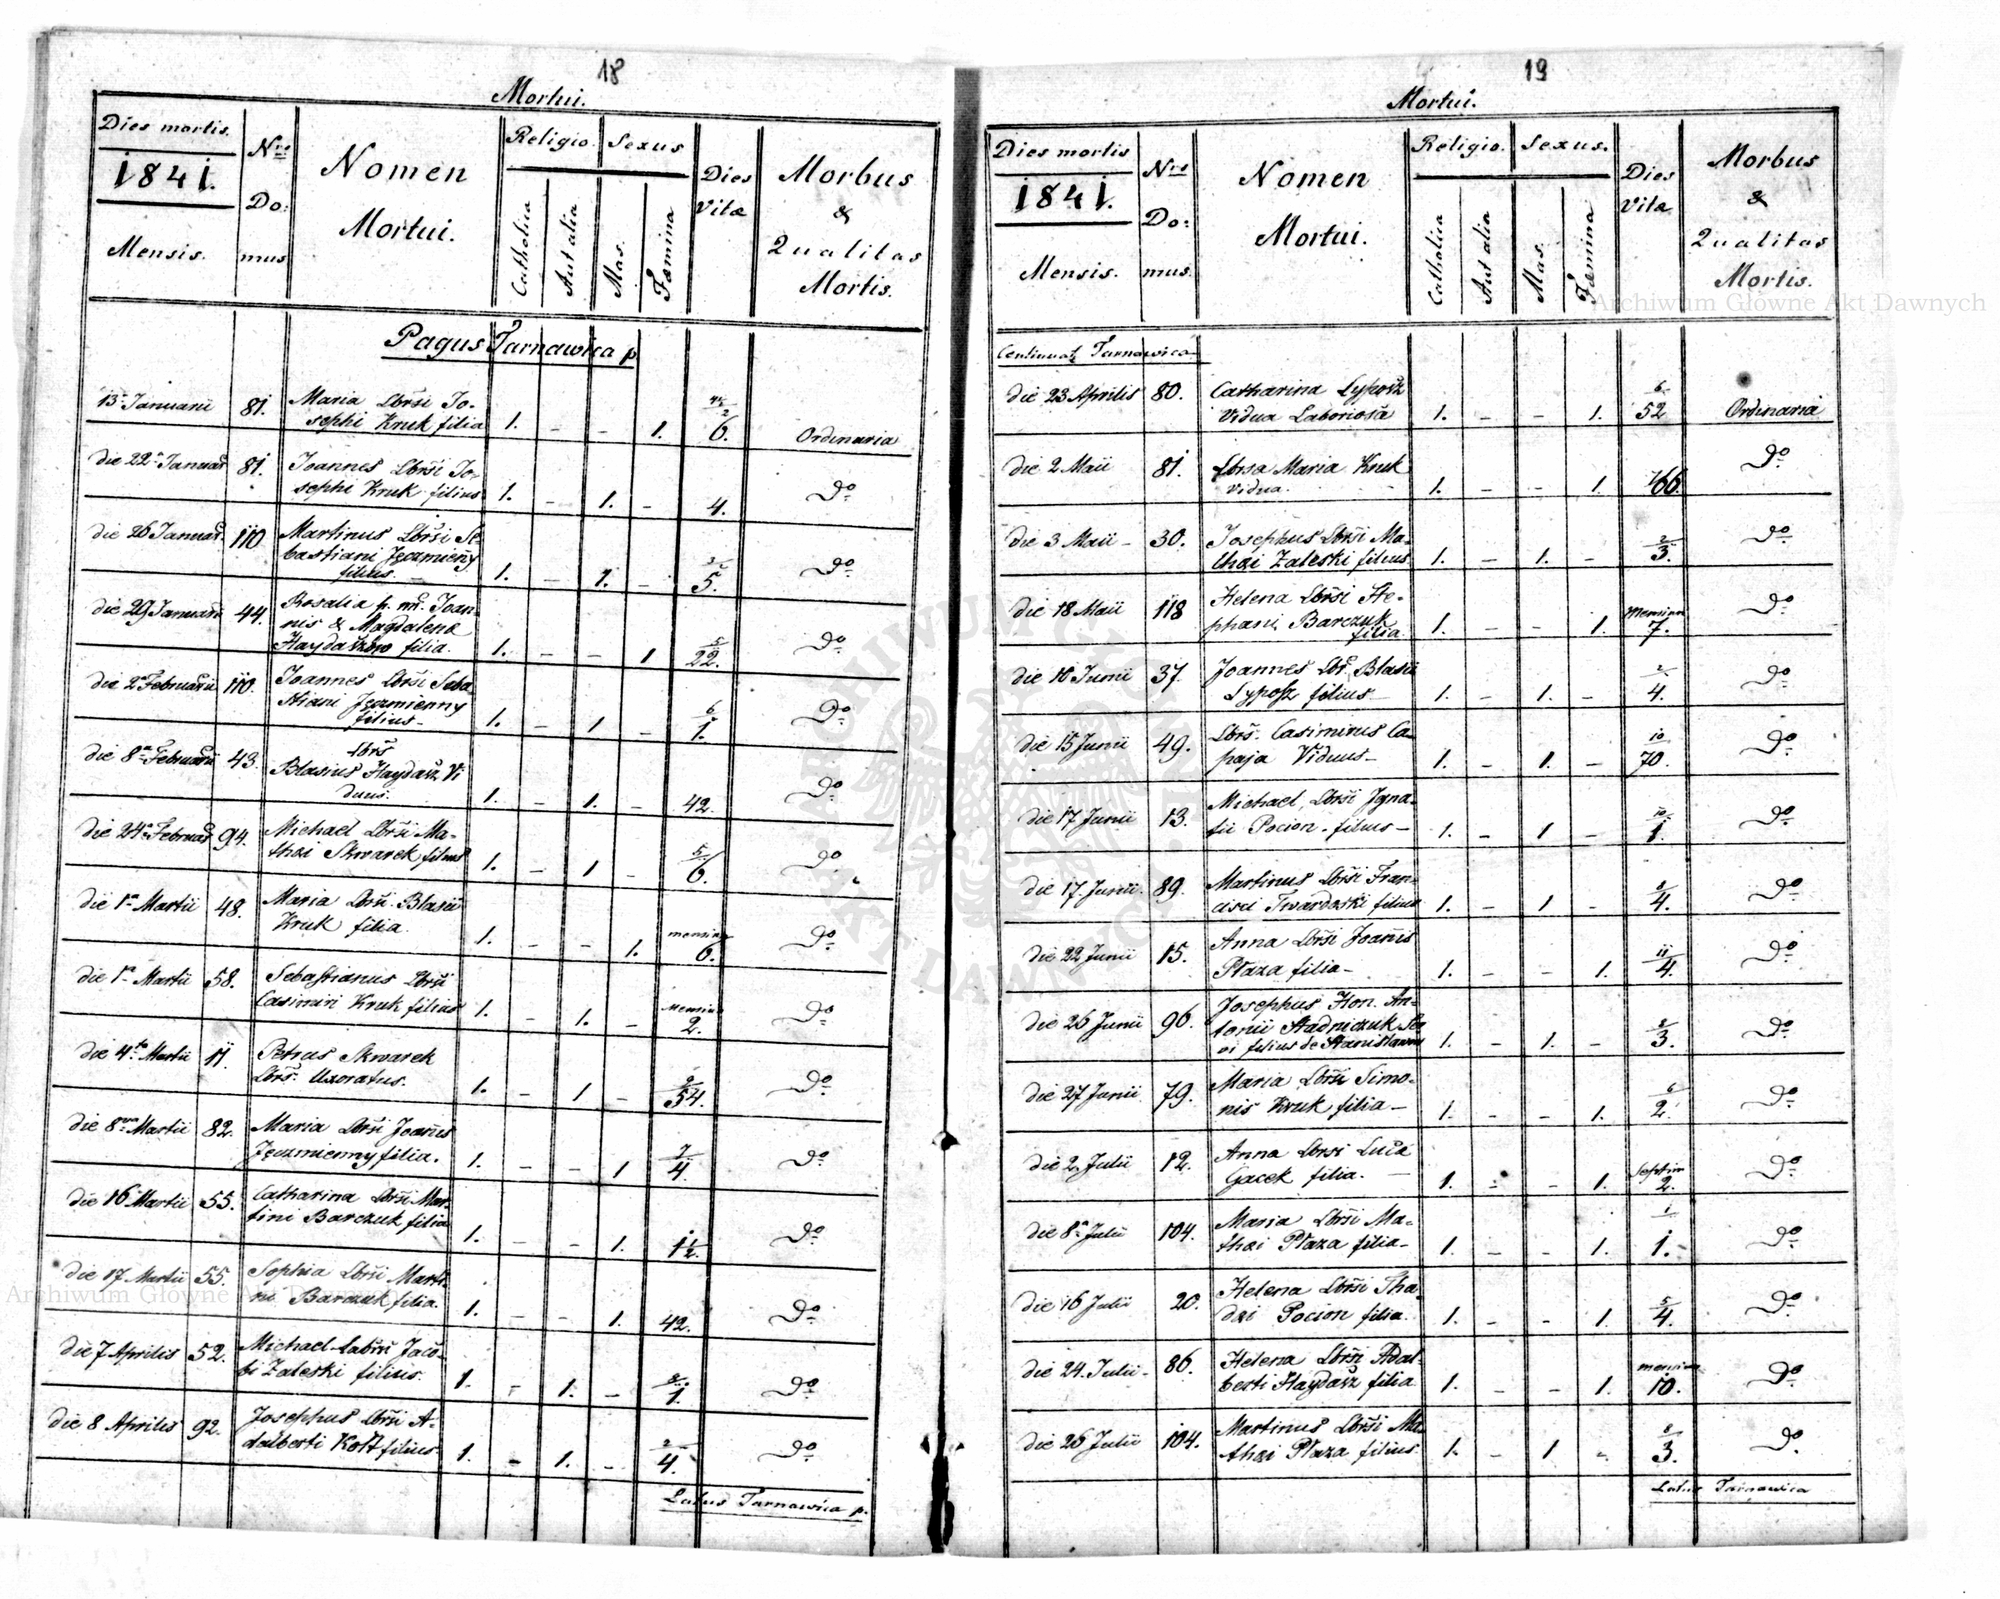 18
Mortui.
Dies mortis. Nro Religio. Sexus Dies Morbus
1841. Do: Nomen Vitæ &
Mensis. mus Mortui. Catholica Aut alia Mas. Fæmina Qualitas
Mortis.
Pagus Tarnawica p.
13 Januarii 81. Maria Lbrsi Jo-
sephi Kruk filia 1. - - 1. 6. Ordinaria
die 22 Januar 81. Joannes Lbrsi Jo-
sephi Kruk filius 1. - 1. - 4. Do
die 26 Januar 110 Martinus Lbrsi Se-
bastiani Jęczmienny
filius. 1. - 1. - 5. Do
die 29 Januarii 44. Rosalia Joan-
nis & Magdalena
filia. 1. - - 1 5/22. Do
die 2 Februarii 110. Joannes Lbrsi Seba
stiani Jęczmienny
filius - 1. - 1 6/1. Do
die 8 Februarii 43. Lbrs
Blasius Haydasz Vi
duus. 1. - 1. - 42. Do
die 24 Februar 94. Michael Lbrsi Ma-
thæi Skwarek filius 1. - 1 - 5/6. Do
die 1 Martii 48. Maria Lbrsi Blasii
Kruk filia. 1. - - 1. 6. Do
die 1 Martii 58. Sebastianus Lbrsi
Casimiri Kruk filius 1. - 1. - 2. Do
die 4 Martii 11. Petrus Skwarek
Lbrs. Uxoratus. 1. - 1 - 54. Do
die 8 Martii 82. Maria Lbrsi Joannis
Jęczmienny filia. 1. - - 1 7/4 Do
die 16 Martii 55. Catharina Lbrsi Mar-
tini Barczuk filia 1. - - 1. 1 1/2. Do
die 17 Martii 55. Sophia Lbrsi Marti
ni Barczuk filia. 1. - - 1. 42. Do
die 7 Aprilis 52. Michael Jaco-
bi Zaleski filius. 1. - 1. - 1. Do
die 8 Aprilis 92. Josephus Lbrsi A-
dalberti Kott filius 1. - 1. - 2/4. Do
Latus Tarnawica p.
19
Mortui.
Dies mortis Nro Religio. Sexus. Dies Morbus
1841. Do: Nomen Vita &
Mensis. mus. Mortui. Catholica Aut alia Mas. Fæmina Qualitas
Mortis.
Tarnawica
die 23 Aprilis 80. Catharina Lyposz
Vidua Laboriosa 1. - - 1. 6/52 Ordinaria
die 2 Maii 81. Lbrsa Maria Kruk
vidua. 1. - - 1. 66. Do
die 3 Maii - 30. Josephus Lbrsi Ma-
thæi Zaleski filius 1. - 1. - 2/3. Do
die 18 Maii 118 Helena Lbrsi Ste-
phani Barczuk
filia. 1. - - 1. 7. Do
die 10 Junii 37. Joannes Lbr. Blasii
Lyposz filius - 1. - 1. - 2/4. Do
die 15 Junii 49. Lbrs. Casimirus Ca-
paja Viduus - 1. - 1. - 10/70. Do
die 17 Junii 13. Michael Lbrsi Igna-
tii Pocion - filius - 1. - 1 - 10/1. Do
die 17. Junii 89. Martinus Lbrsi Fran-
cisci Twardoski filius 1. - 1 - 8/4. Do
die 22 Junii 15. Anna Lbrsi Joannis
Płaza filia - 1. - - 1. 11/4. Do
die 26 Junii 96. Josephus Hon. An-
tonii Stadniczuk
filius de Stanislawow 1. - 1. - 8/3. Do
die 27 Junii 79. Maria Lbrsi Simo-
nis Kruk filia - 1. - - 1. 6/2. Do
die 2 Julii 12. Anna Lbrsi Lucæ
Gacek filia. - 1. - - 1. 2. Do
die 8 Julii 104. Maria Lbrsi Ma-
thæi Płaza filia - 1. - - 1. 1. - Do
die 16 Julii 20. Helena Lbrsi Tha-
dæi Pocion filia. 1. - - 1. 5/4. Do
die 24. Julii - 86. Helena Lbrsi Adal-
berti Haydasz filia 1. - - 1. 10. Do
die 26 Julii 104. Martinus Lbrsi Ma-
thæi Płaza filius 1. - 1 - 8/3. Do
Latus Tarnawica
Archiwum Główne Akt Dawnych